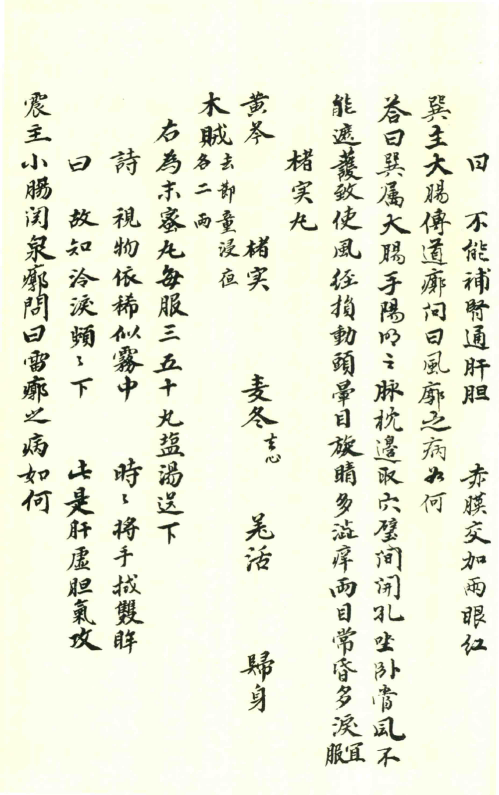 曰　不能補腎通肝胆　赤膜交加兩眼紅
巽主大腸傳道廓问曰風廓之病如何
荅曰巽属大腸手陽明之脉枕邊取穴壁间開孔坐卧當風不
能遮護致使風径損動頭暈目旋睛多澁痒兩目常昏多淚宜服
楮实丸
黄芩　楮实　麦冬去心　羌活　歸身
木賊去節童浸宿各二兩
右為末蜜丸每服三五十丸盐湯送下
詩　視物依稀似霧中　時〻將手拭雙眸
曰　故知冷淚頻〻下　此是肝虛胆氣攻
震主小腸関泉廓問曰雷廓之病如何